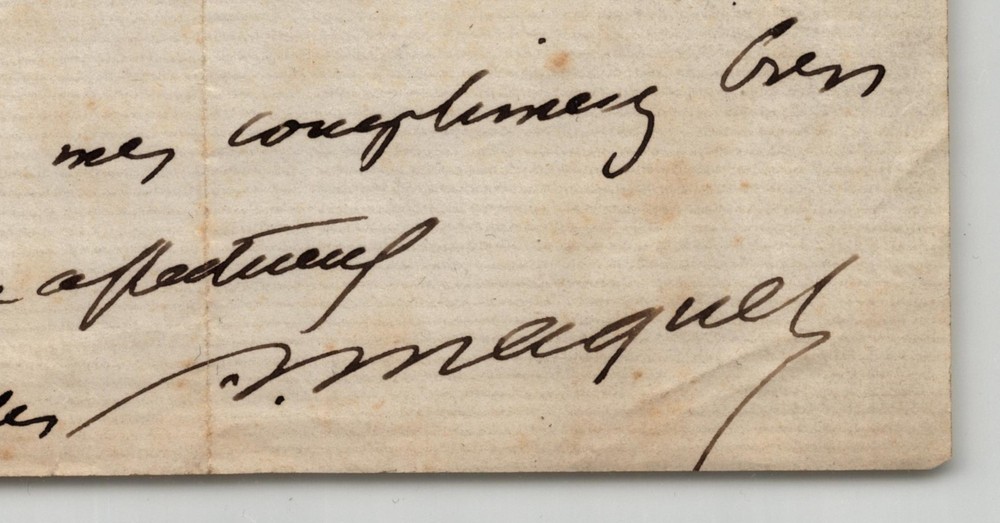 mes compliments bien
affectueux
A. Maquet